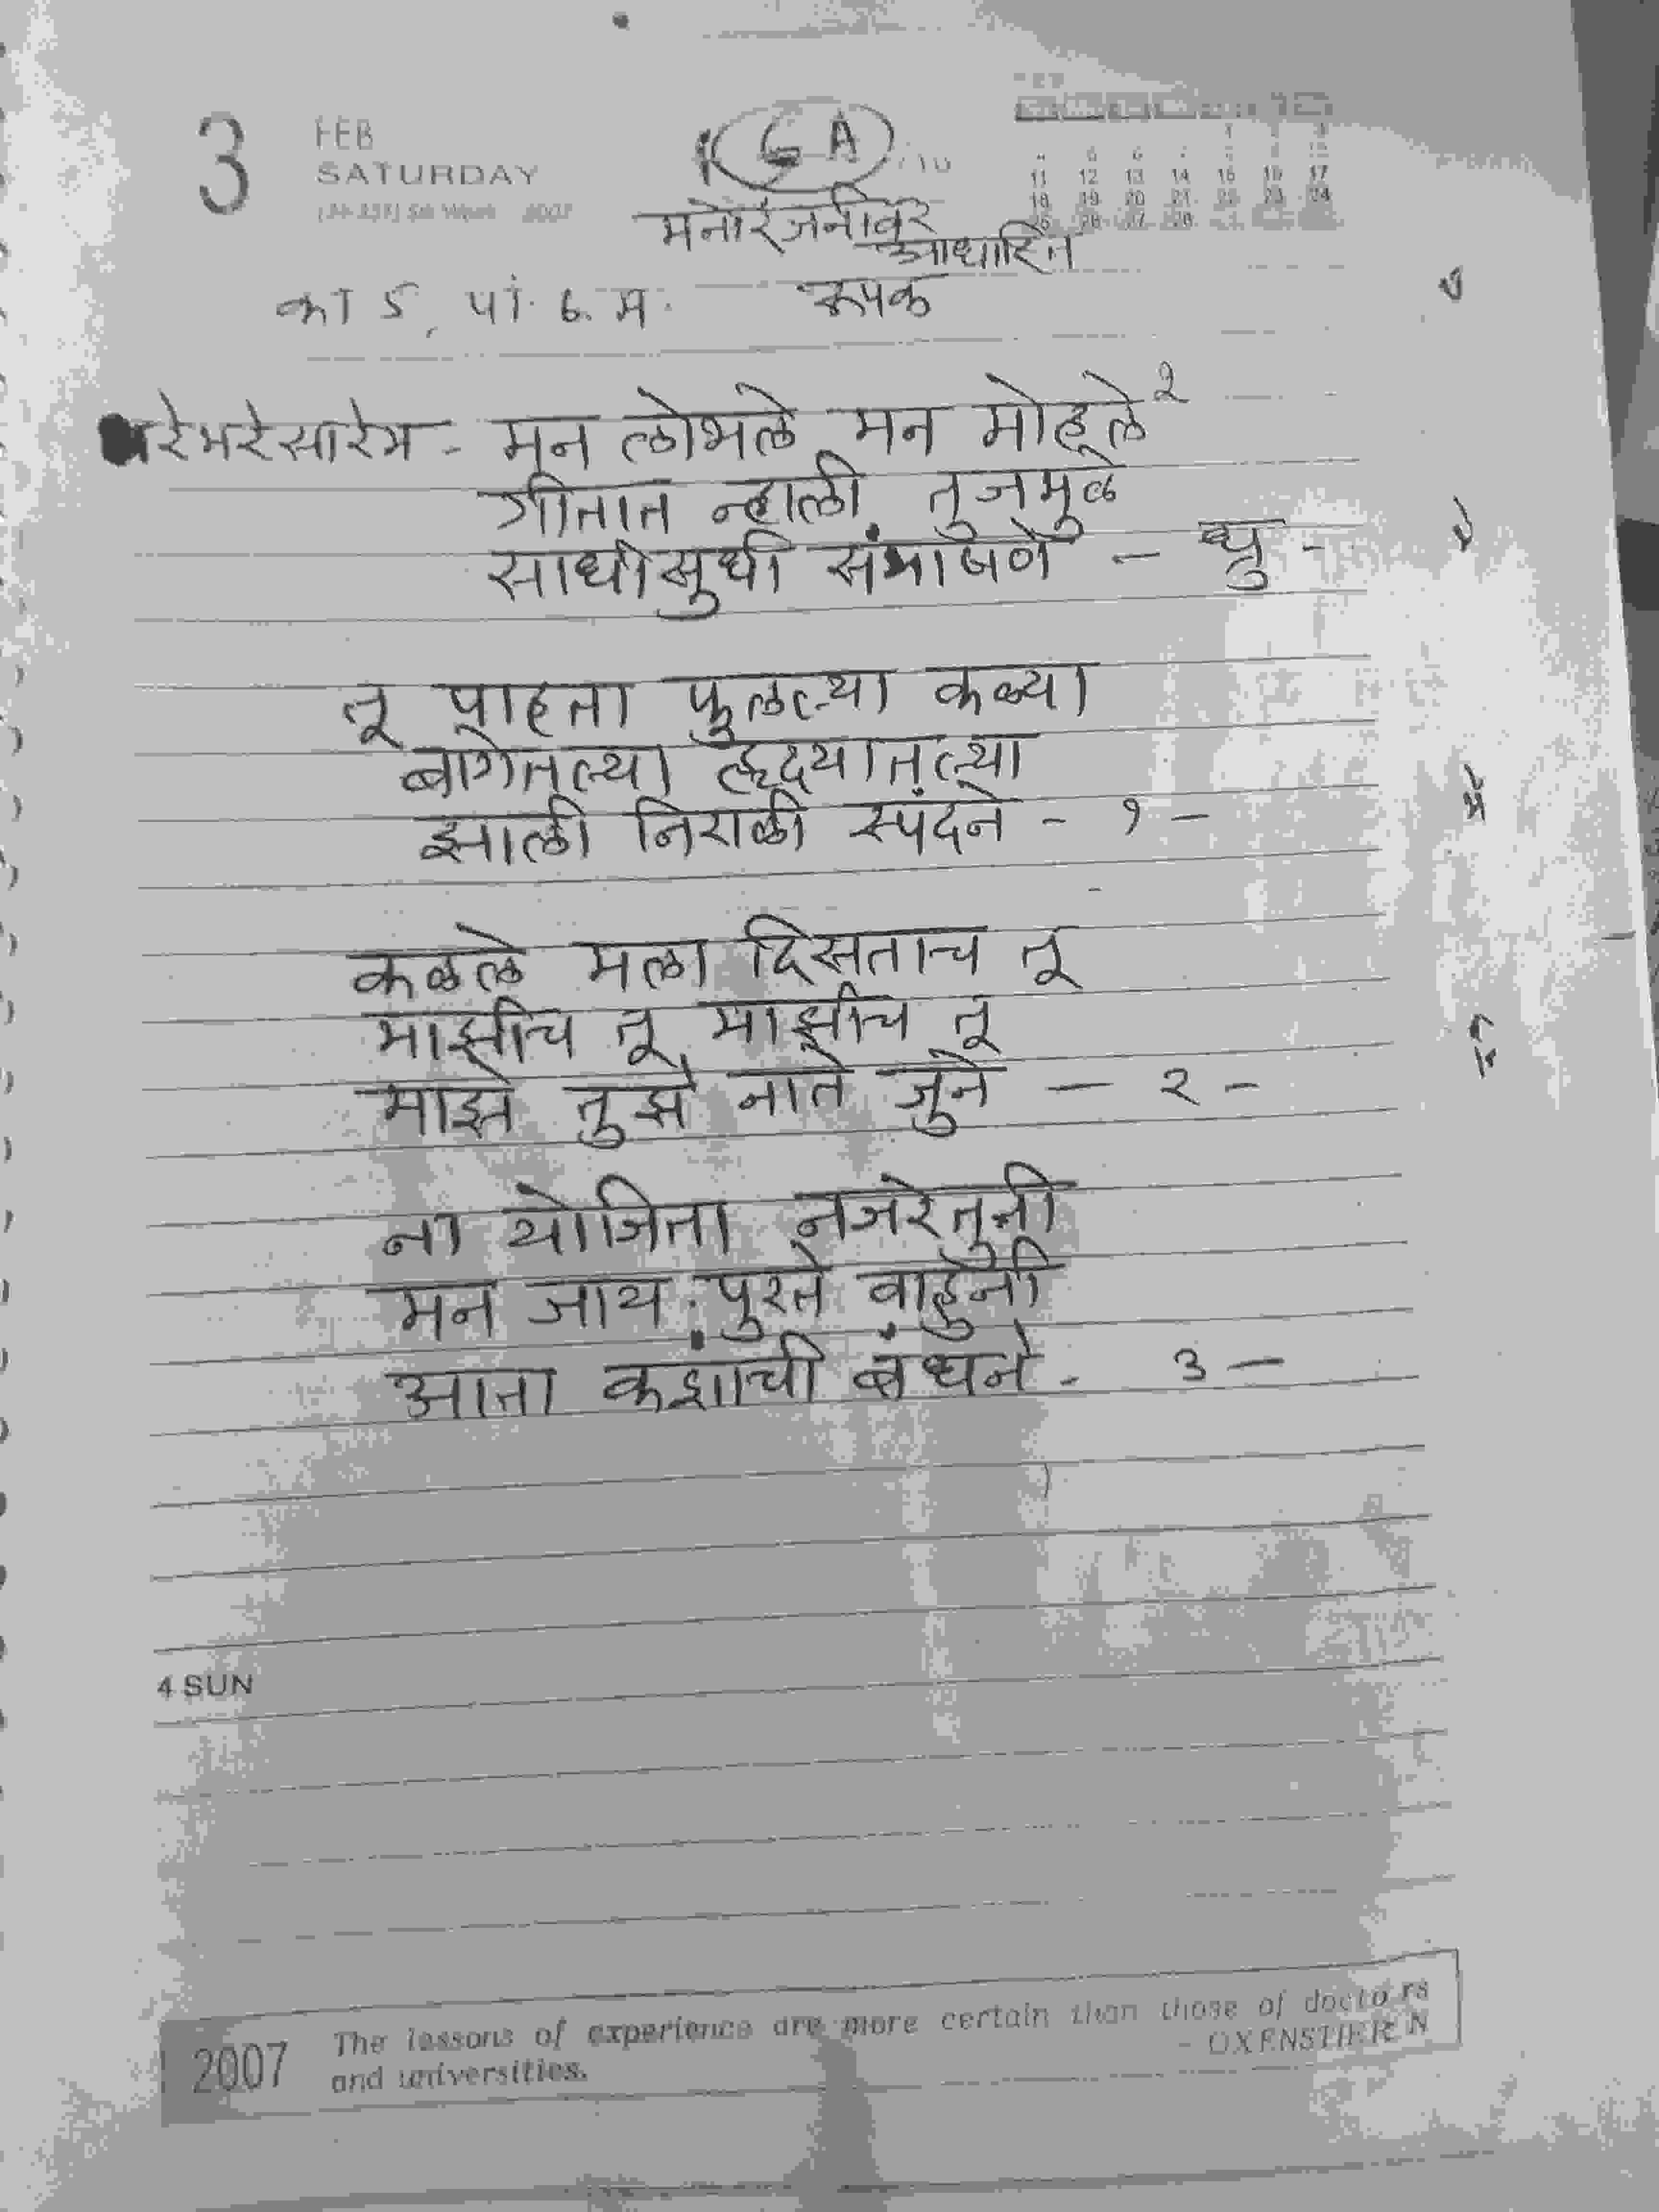 3 FEB
SATURDAY
11 12 13 14 15 16 17
18 19 20 21 22 23 24
25 26 27 28
A
मनोरंजनीवर
आधारित
का 5, पां. 6. म. रूपक
रेमरेसारेम - मन लोभले मन मोहले २
गीतात न्हाली तुजमुळे
साधीसुधी संभाषणे - ध्रु -
तू पाहता फुलल्या कळ्या
बागेतल्या ह्रदयातल्या
झाली निराळी स्पंदने - १ -
कळले मला दिसताच तू
माझीच तू माझीच तू
माझे तुझे नाते जुने - २ -
ना योजिता नजरेतुनी
मन जाय पुरते वाहुनी
आता कशाची बंधने - ३ -
4 SUN
2007 The lessons of experience are more certain than those of doctors
and universities. - OXENSTIERN